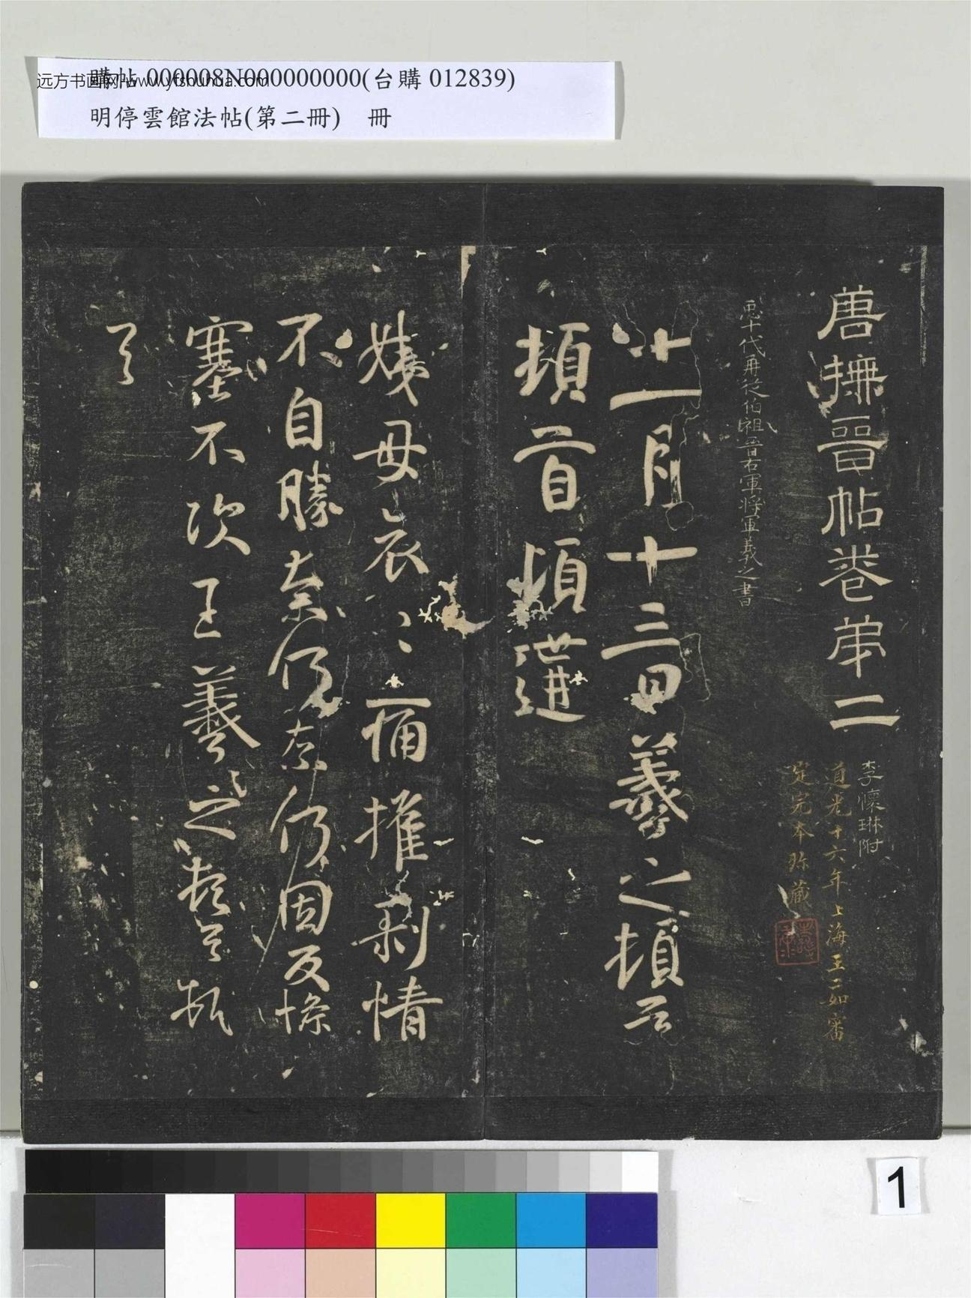 購帖 000008N000000000(台購 012839)
远方书画网 www.yfshuhua.com
明停雲館法帖(第二冊) 冊
唐撫晉帖卷第二
李懷琳附
道光十六年上海王
定宛本珍藏
臣十代再從伯祖晉右軍將軍羲之書
十一月十三日羲之頓首
頓首頓遘
姨母哀哀痛摧剝情
不自勝奈何奈何因反慘
塞不次王羲之頓首頓
首
1